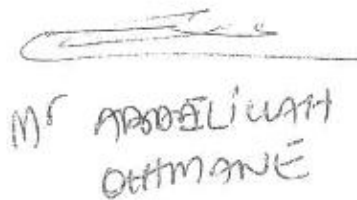 Mr ABDELiLLAH
OUHMANE